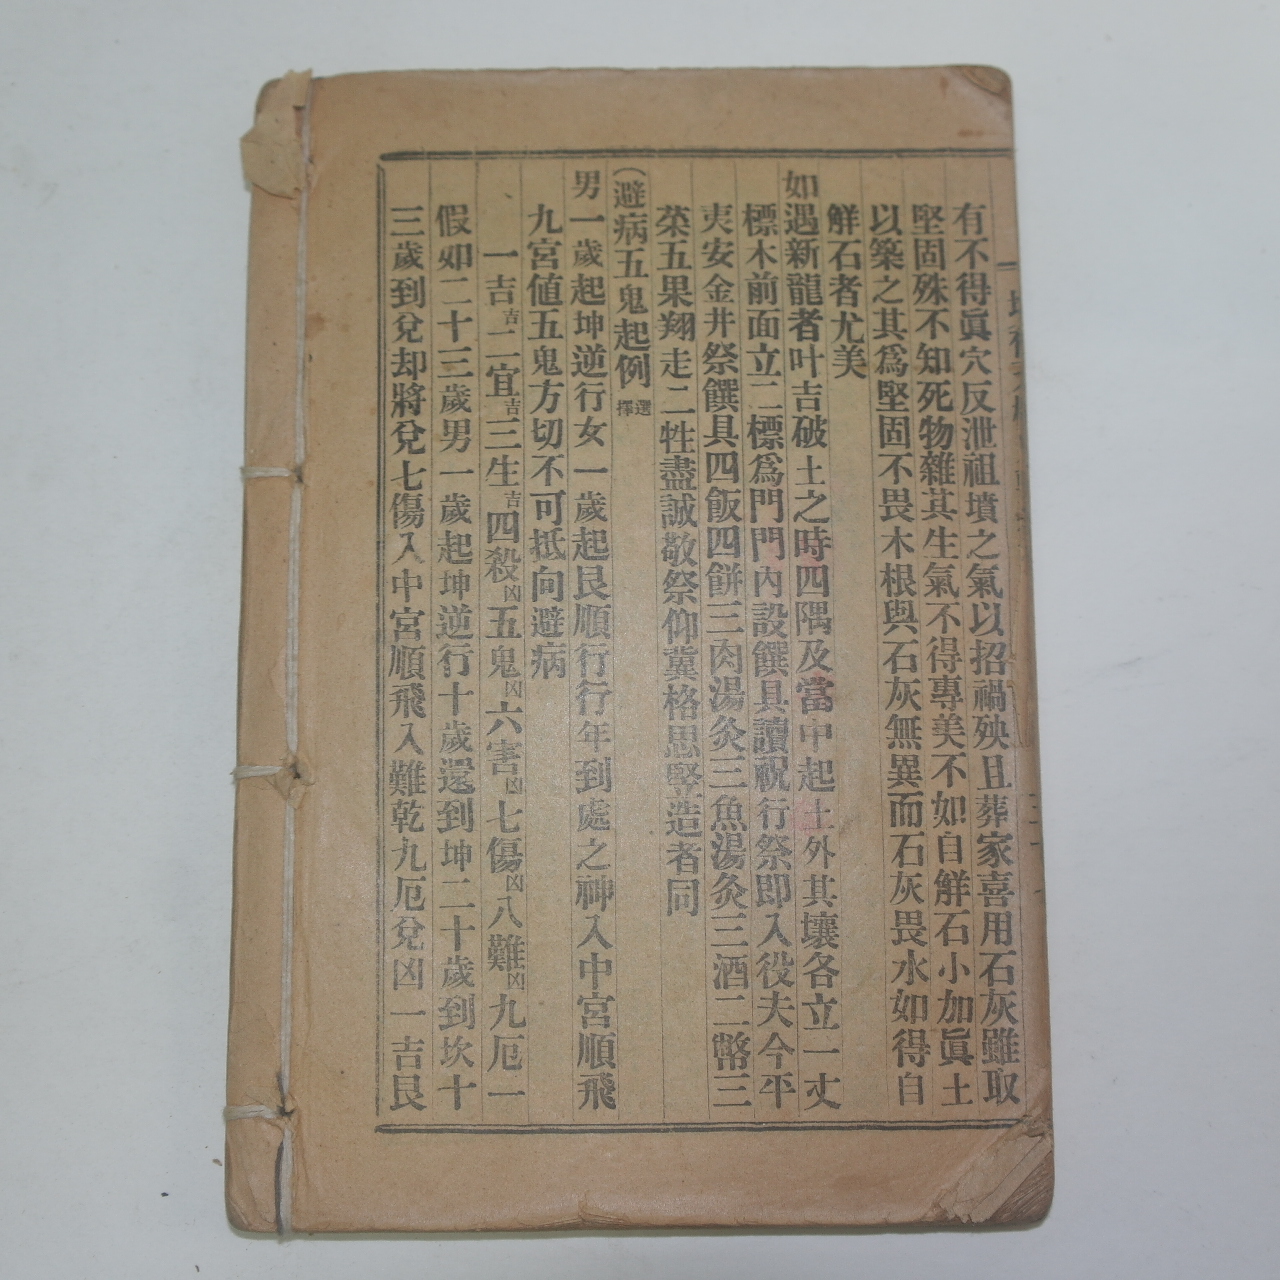 有不得眞穴反泄祖墳之氣以招禍殃且葬家喜用石灰雖取
堅固殊不知死物雜其生氣不得專美不如自鮮石小加眞土
以築之其爲堅固不畏木根與石灰無異而石灰畏水如得自
鮮石者尤美
如遇新龍者叶吉破土之時四隅及當中起土外其壤各立一丈
標木前面立二標爲門門內設饌具讀祝行祭即入役夫今平
夷安金井祭饌具四飯四餠三肉湯灸三魚湯灸三酒二幣三
菜五果翔走二牲盡誠敬祭仰冀格思竪造者同
(避病五鬼起例 選擇
男一歲起坤逆行女一歲起艮順行行年到處之神入中宮順飛
九宮値五鬼方切不可抵向避病
一吉吉二宜吉三生吉四殺凶五鬼凶六害凶七傷凶八難凶九厄一
假如二十三歲男一歲起坤逆行十歲還到坤二十歲到坎十
三歲到兌却將兌七傷入中宮順飛入難乾九厄兌凶一吉艮